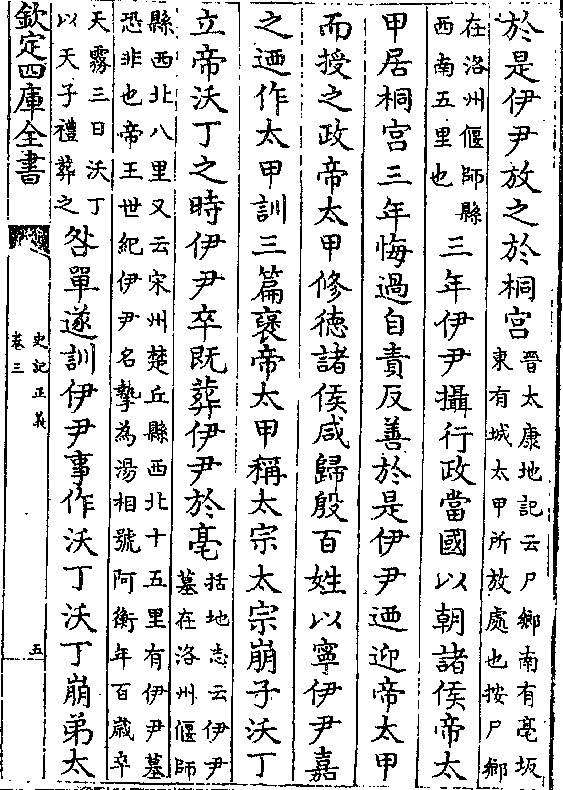 於是伊尹放之於桐宮晉太康地記云尸鄉南有亳坂東有城太甲所放處也按尸鄉
在洛州偃師縣西南五里也三年伊尹攝行政當國以朝諸侯帝太
甲居桐宮三年悔過自責反善於是伊尹迺迎帝太甲
而授之政帝太甲修德諸侯咸歸殷百姓以寧伊尹嘉
之迺作太甲訓三篇襃帝太甲稱太宗太宗崩子沃丁
立帝沃丁之時伊尹卒既葬伊尹於亳括地志云伊尹墓在洛州偃師
縣西北八里又云宋州楚丘縣西北十五里有伊尹墓恐非也帝王世紀伊尹名摯為湯相號阿衡年百歲卒
天霧三日沃丁以天子禮葬之咎單遂訓伊尹事作沃丁沃丁崩弟太
欽定四庫全書
史記正義
卷三
五